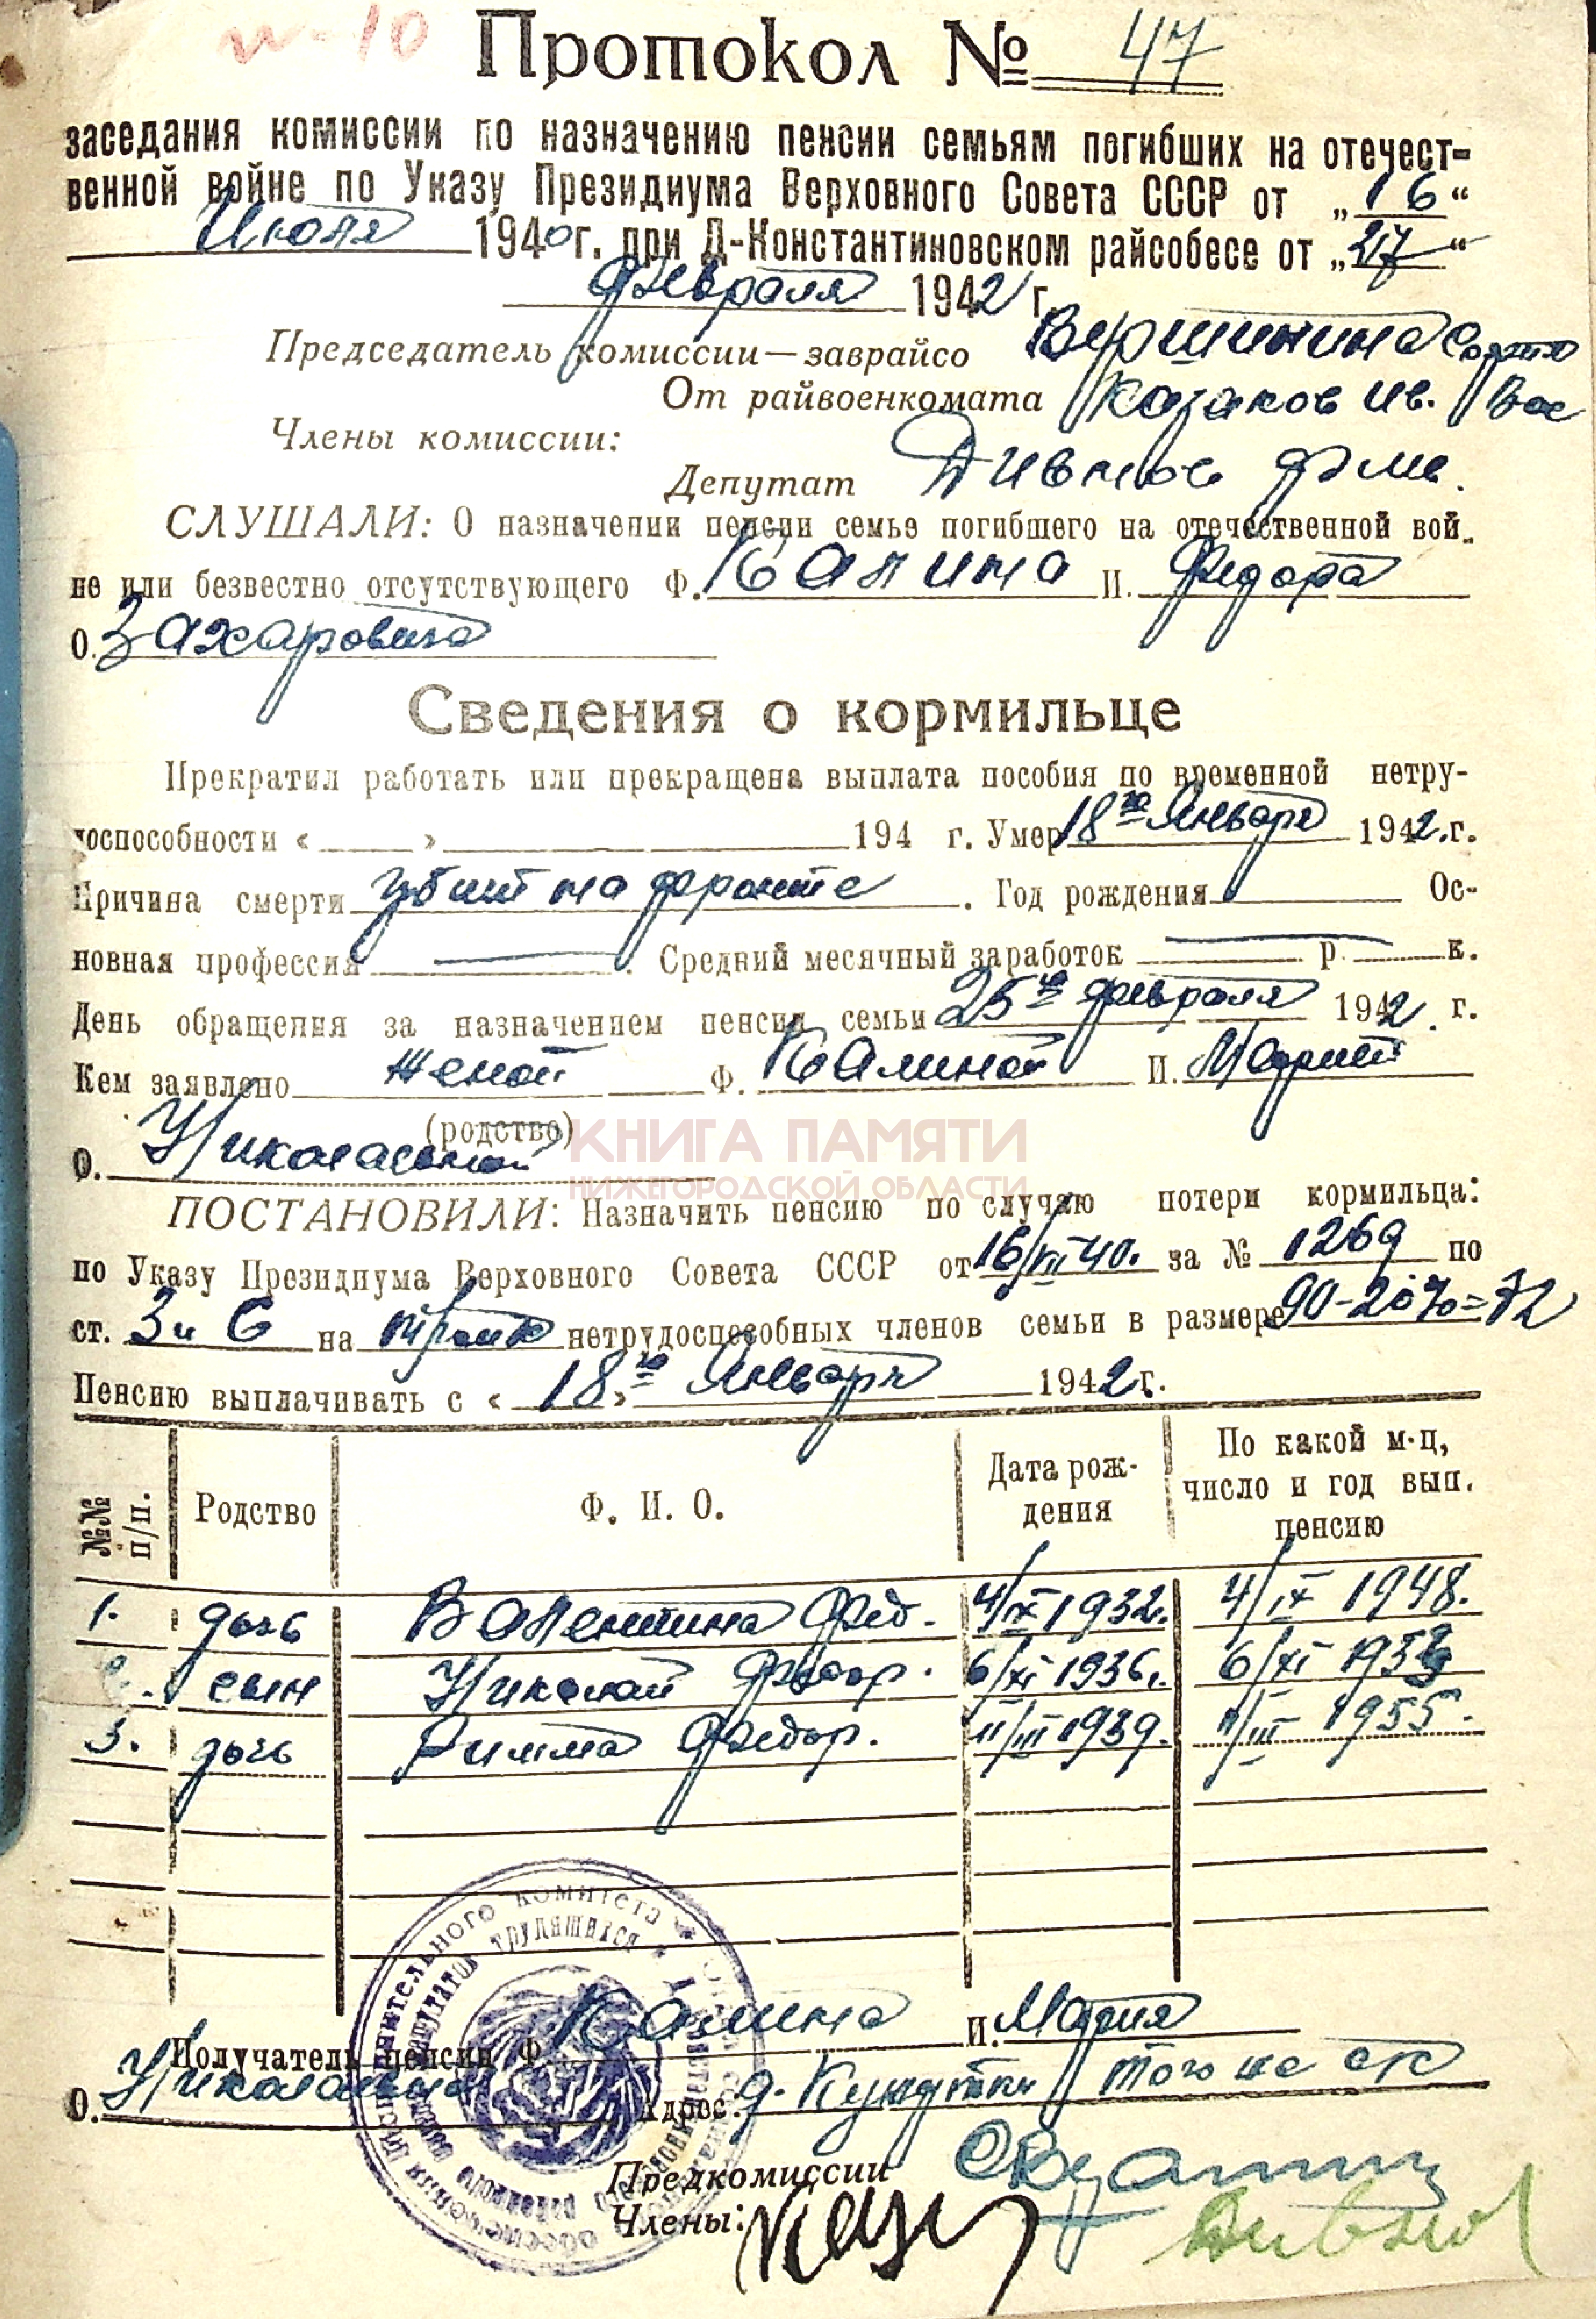 Протокол № 47
заседания комиссии по назначению пенсии семьям погибших на отечест-
венной войне по Указу Президиума Верховного Совета СССР от „16“
Июля 1940 г. при Д-Константиновском райсобесе от „27“
февраля 1942 г.
Председатель комиссии—заврайсо Вершинина
От райвоенкомата Казаков Ив. Вас
Члены комиссии:
Депутат Дивнов
СЛУШАЛИ: О назначении пенсии семье погибшего на отечественной вой-
не или безвестно отсутствующего Ф. Калина И. Федора
О. Захаровича
Сведения о кормильце
Прекратил работать или прекращена выплата пособия по временной нетру-
доспособности « » 194 г. Умер 18го Января 1942 г.
Причина смерти убит на фронте. Год рождения Ос-
новная профессия — . Средний месячный заработок — р. — к.
День обращения за назначением пенсии семьи 25го февраля 1942 г.
Кем заявлено женой Ф. Калиной И. Марией
(родство)
О. Николаевной
КНИГА ПАМЯТИ
НИЖЕГОРОДСКОЙ ОБЛАСТИ
ПОСТАНОВИЛИ: Назначить пенсию по случаю потери кормильца:
по Указу Президиума Верховного Совета СССР от 16/VII 40. за № 1269 по
ст. 3 и 6 на троих нетрудоспособных членов семьи в размере 90-20%=72
Пенсию выплачивать с «18го» Января 1942 г.
№№ п/п. Родство Ф. И. О. Дата рож-дения По какой м-ц, число и год вып. пенсию
1. дочь Валентина Фед. 4/IX 1932. 4/IX 1948.
2. сын Николай Федор. 6/XI 1936г. 6/XI 195
3. дочь Римма Федор. 11/III 1939. 11/III 1955.
Получатель пенсии Ф. Калина И. Мария
О. Николаевна Адрес: д. того же с/с
Предкомиссии
Члены: Дивнов
исполнительного комитета
депутатов трудящихся